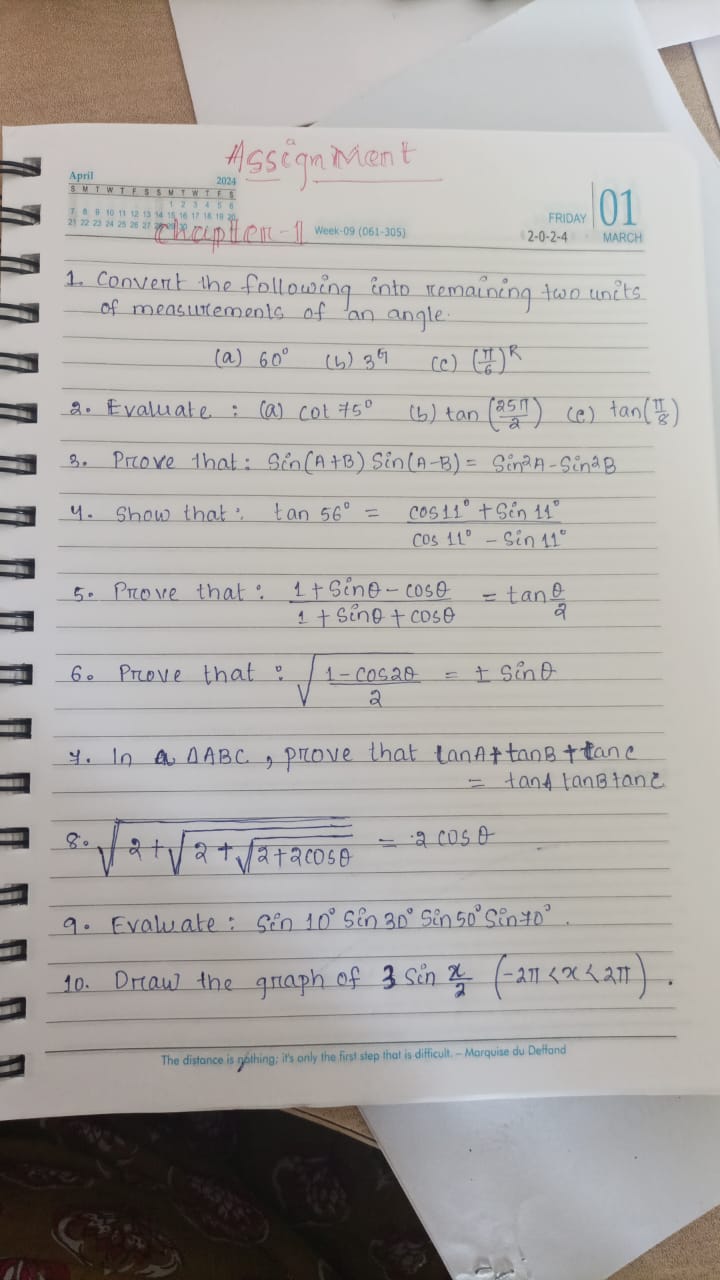 Assignment
April 2024
S M T W T F S S M T W T F S
1 2 3 4 5 6
7 8 9 10 11 12 13 14 15 16 17 18 19 20
21 22 23 24 25 26 27 28 29 30
Chapter-1
Week-09 (061-305)
FRIDAY 01
2-0-2-4 MARCH
1. Convert the following into remaining two units
of measurements of an angle.
(a) 60° (b) 3ᴳ (c) (π/6)ᴿ
2. Evaluate : (a) cot 75° (b) tan (25π/2) (c) tan(π/8)
3. Prove that : Sin(A+B) Sin(A-B) = Sin²A - Sin²B
4. Show that : tan 56° = (cos11° + Sin 11°)/(cos 11° - Sin 11°)
5. Prove that : (1 + Sinθ - cosθ)/(1 + Sinθ + cosθ) = tan θ/2
6. Prove that : √((1-cos2θ)/2) = ± Sinθ
7. In a ΔABC, prove that tanA + tanB + tanC
= tanA tanB tanC
8. √(2+√(2+√(2+2cosθ))) = 2 cosθ
9. Evaluate : Sin 10° Sin 30° Sin 50° Sin 70°.
10. Draw the graph of 3 Sin x/2 (-2π < x < 2π).
The distance is nothing; it's only the first step that is difficult. – Marquise du Deffand